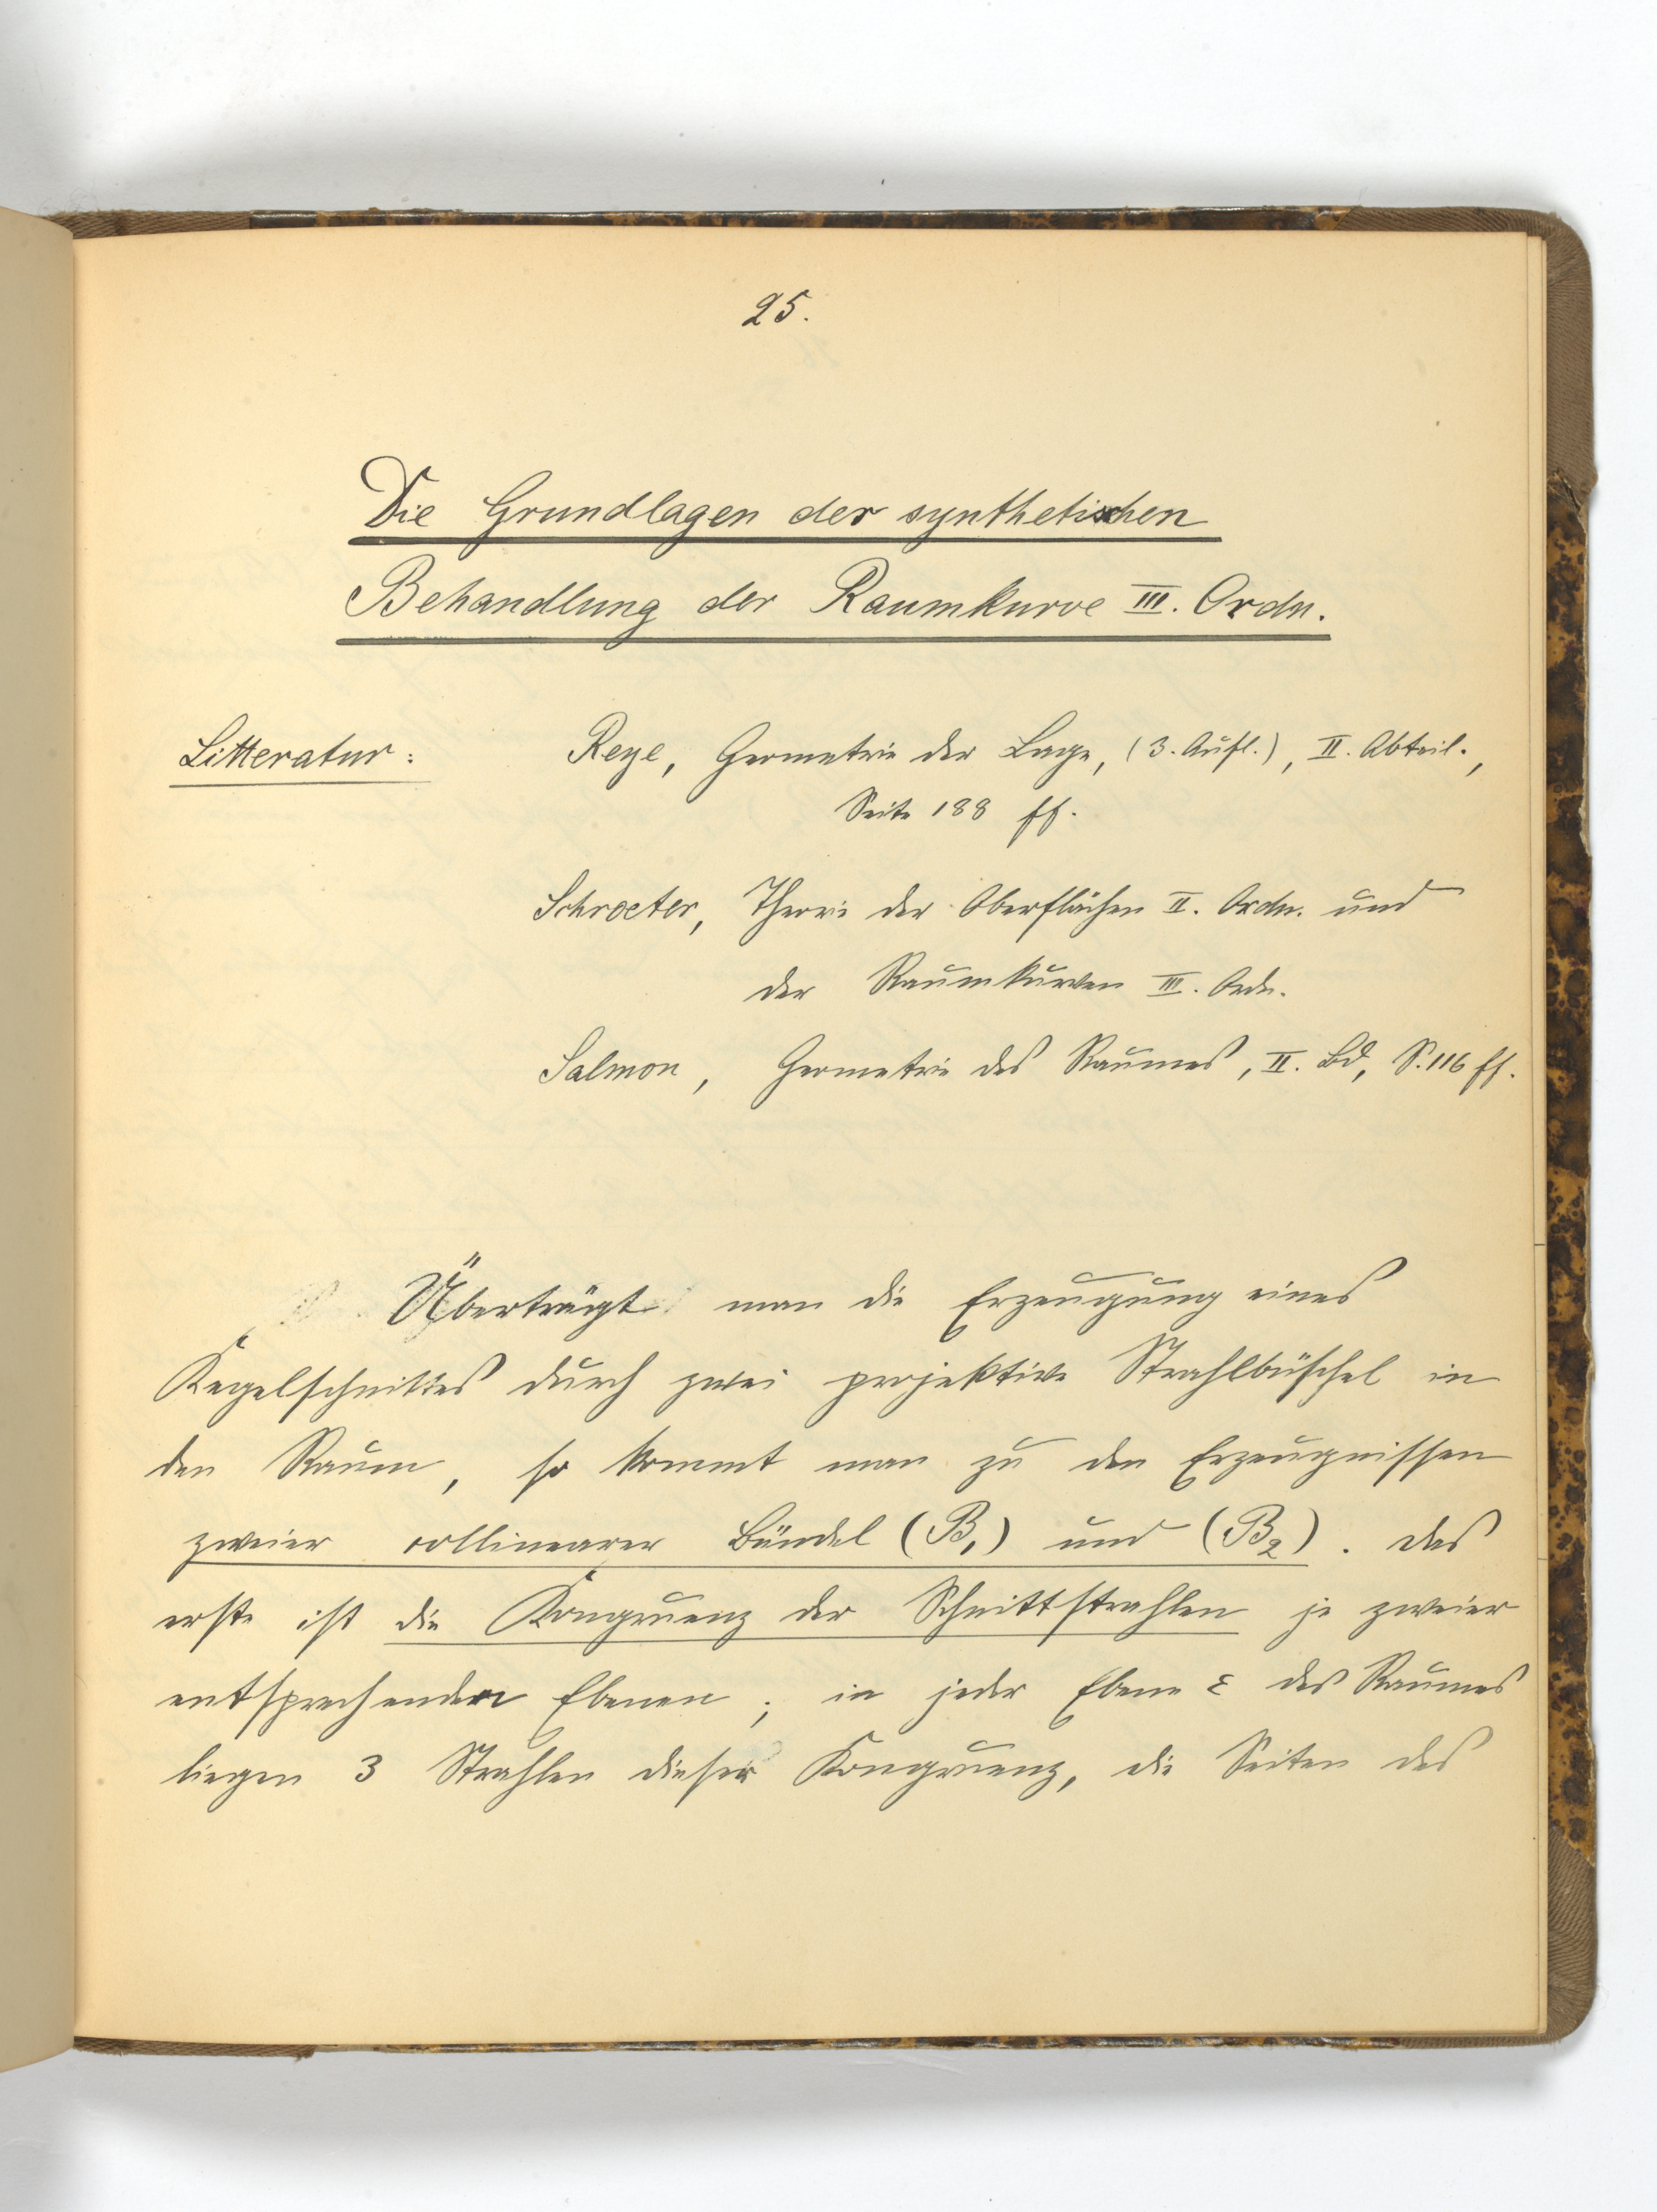 25.
Die Grundlagen der synthetischen
Behandlung der Raumkurve III. Ordn.
Litteratur: Reye, Geometrie der Lage, (3. Aufl.), II. Abteil.,
Seite 188 ff.
Schroeter, Theorie der Oberflächen II. Ordn. und
der Raumkurven III. Ordn.
Salmon, Geometrie des Raumes, II. Bd, S. 116 ff.
Überträgt man die Erzeugung eines
Kegelschnittes durch zwei projektive Strahlbüschel in
den Raum, so kommt man zu den Erzeugnissen
zweier collinearer Bündel (B₁) und (B₂). Das
erste ist die Kongruenz der Schnittstrahlen je zweier
entsprechender Ebenen; in jeder Ebene ε des Raumes
liegen 3 Strahlen dieser Kongruenz, die Seiten des